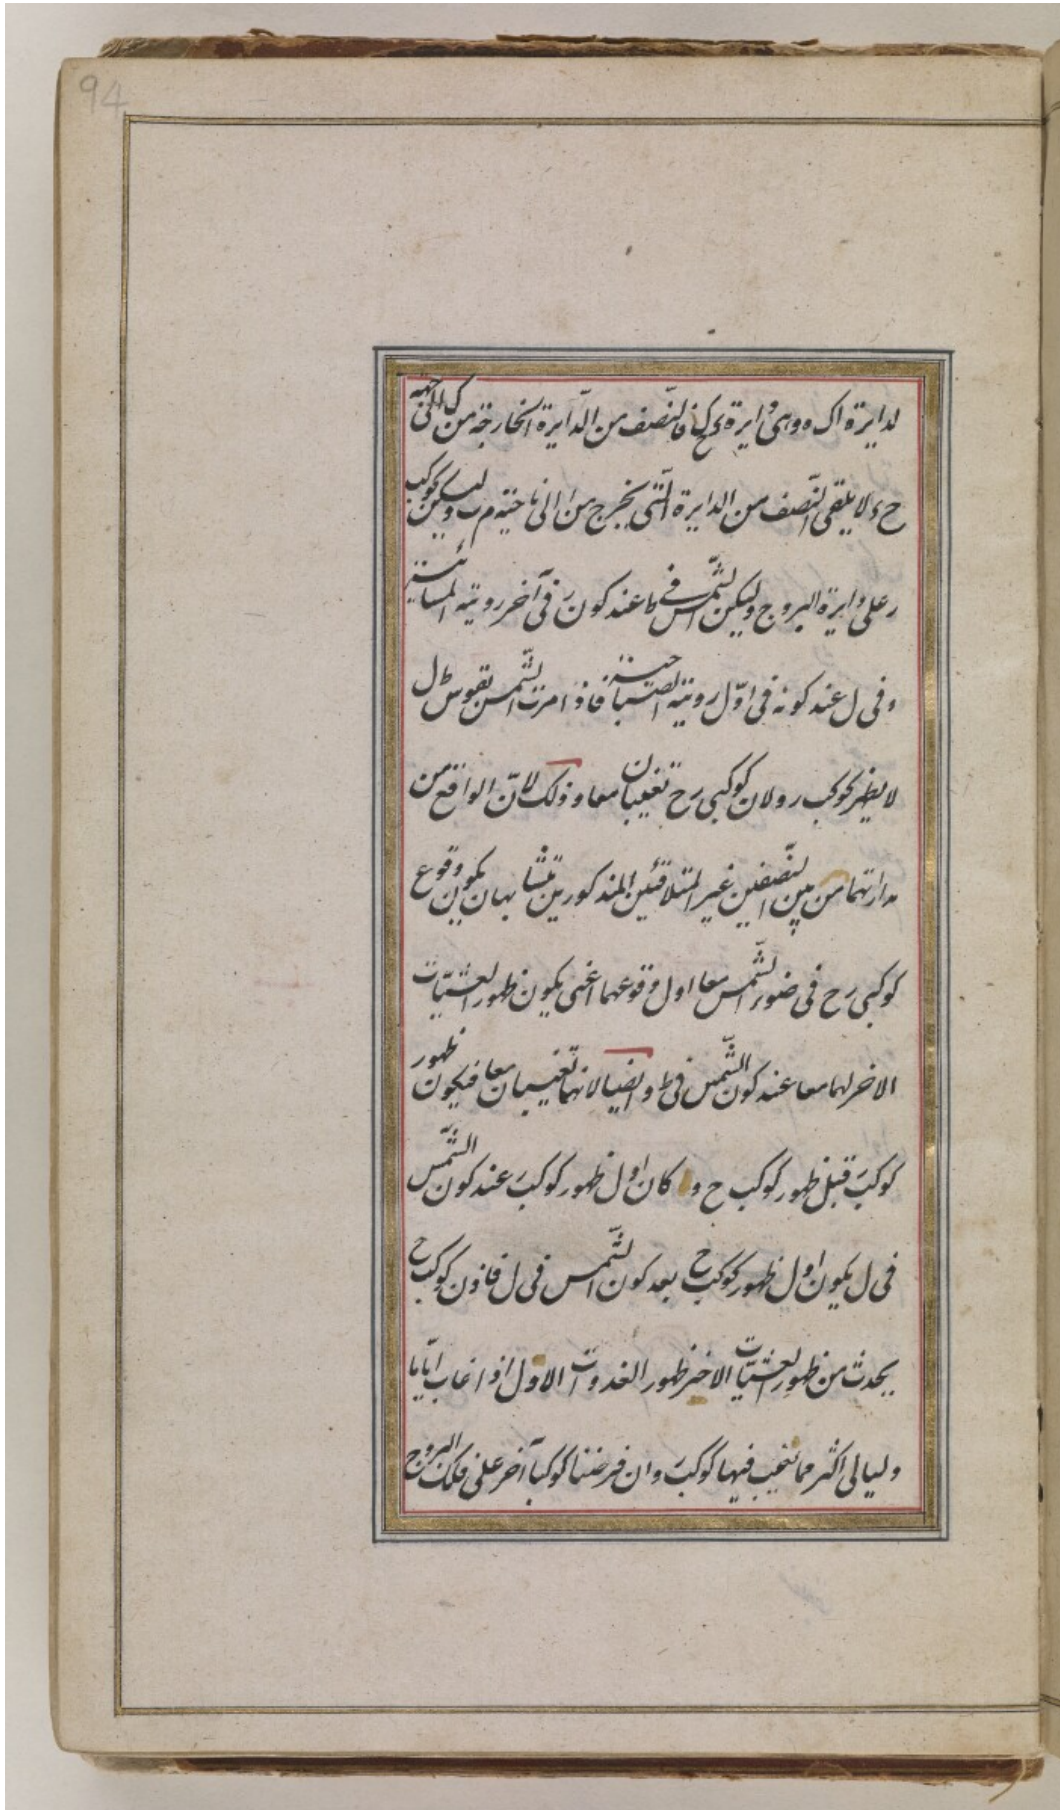 94
لدايرة اک ه وهى دايرة ى ح ک فالنّصف من الدّايرة الخارجة من ک الى جهة
ح ء لا يلقى النّصف من الدايرة الّتى يخرج من ا الى ناحية م ب وليكن كوكب
ر على دايرة البروج وليكن الشّمس فى ط عند كون ر فى آخر روية المسائية
وفى ل عند كونه فى اوّل روية الصّباحية فاذا مرت الشّمس بقوس ط ل
لا يظهر كوكب ر ولان كوكبى ر ح تغيبان معا وذلک لانّ الواقع من
مداريهما من بين النّصفين غير المتلاقئين المذكورين تتشابهان يكون وقوع
كوكبى ر ح فى ضوء الشّمس معا اول وقوعهما اعنى يكون ظهور العشيّات
الاخر لهما معا عند كون الشّمس فى ط وايضا لانهما تغيبان معا فيكون ظهور
كوكب ر قبل ظهور كوكب ح و كان اول ظهور كوكب ر عند كون الشّمس
فى ل يكون اول ظهور كوكب ح بعد كون الشّمس فى ل فاذن كوكب ح
يحدث من ظهور العشيّات الاخير ظهور الغدوات الاوّل اذا غاب ايّاما
وليالى اكثر مما تغيب فيها كوكب ر وان فرضنا كوكبا آخر على فلک البروج